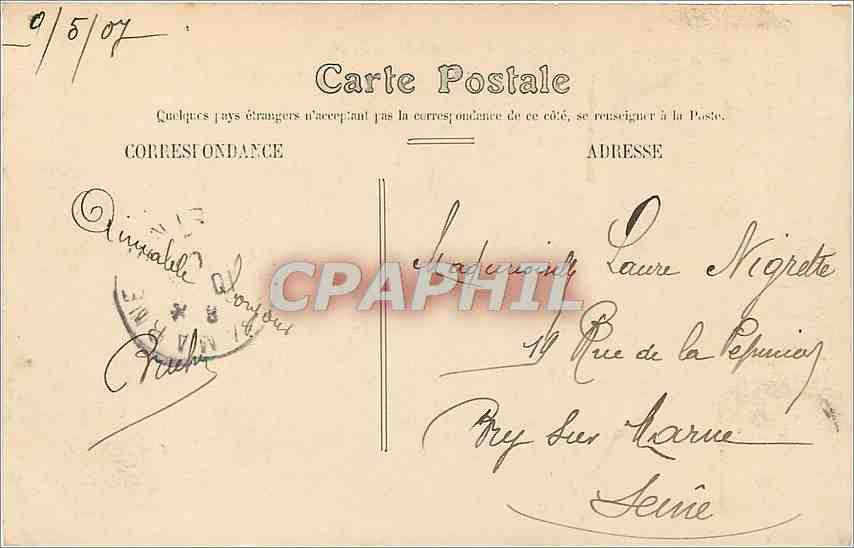 9/5/07
Carte Postale
Quelques pays étrangers n'acceptant pas la correspondance de ce côté, se renseigner à la Poste.
CORRESPONDANCE
ADRESSE
Aimable
Bonjour
Mademoiselle Laure Nigrette
19 Rue de la Pepinière
Bry sur Marne
Seine
CPAPHIL
MARNE